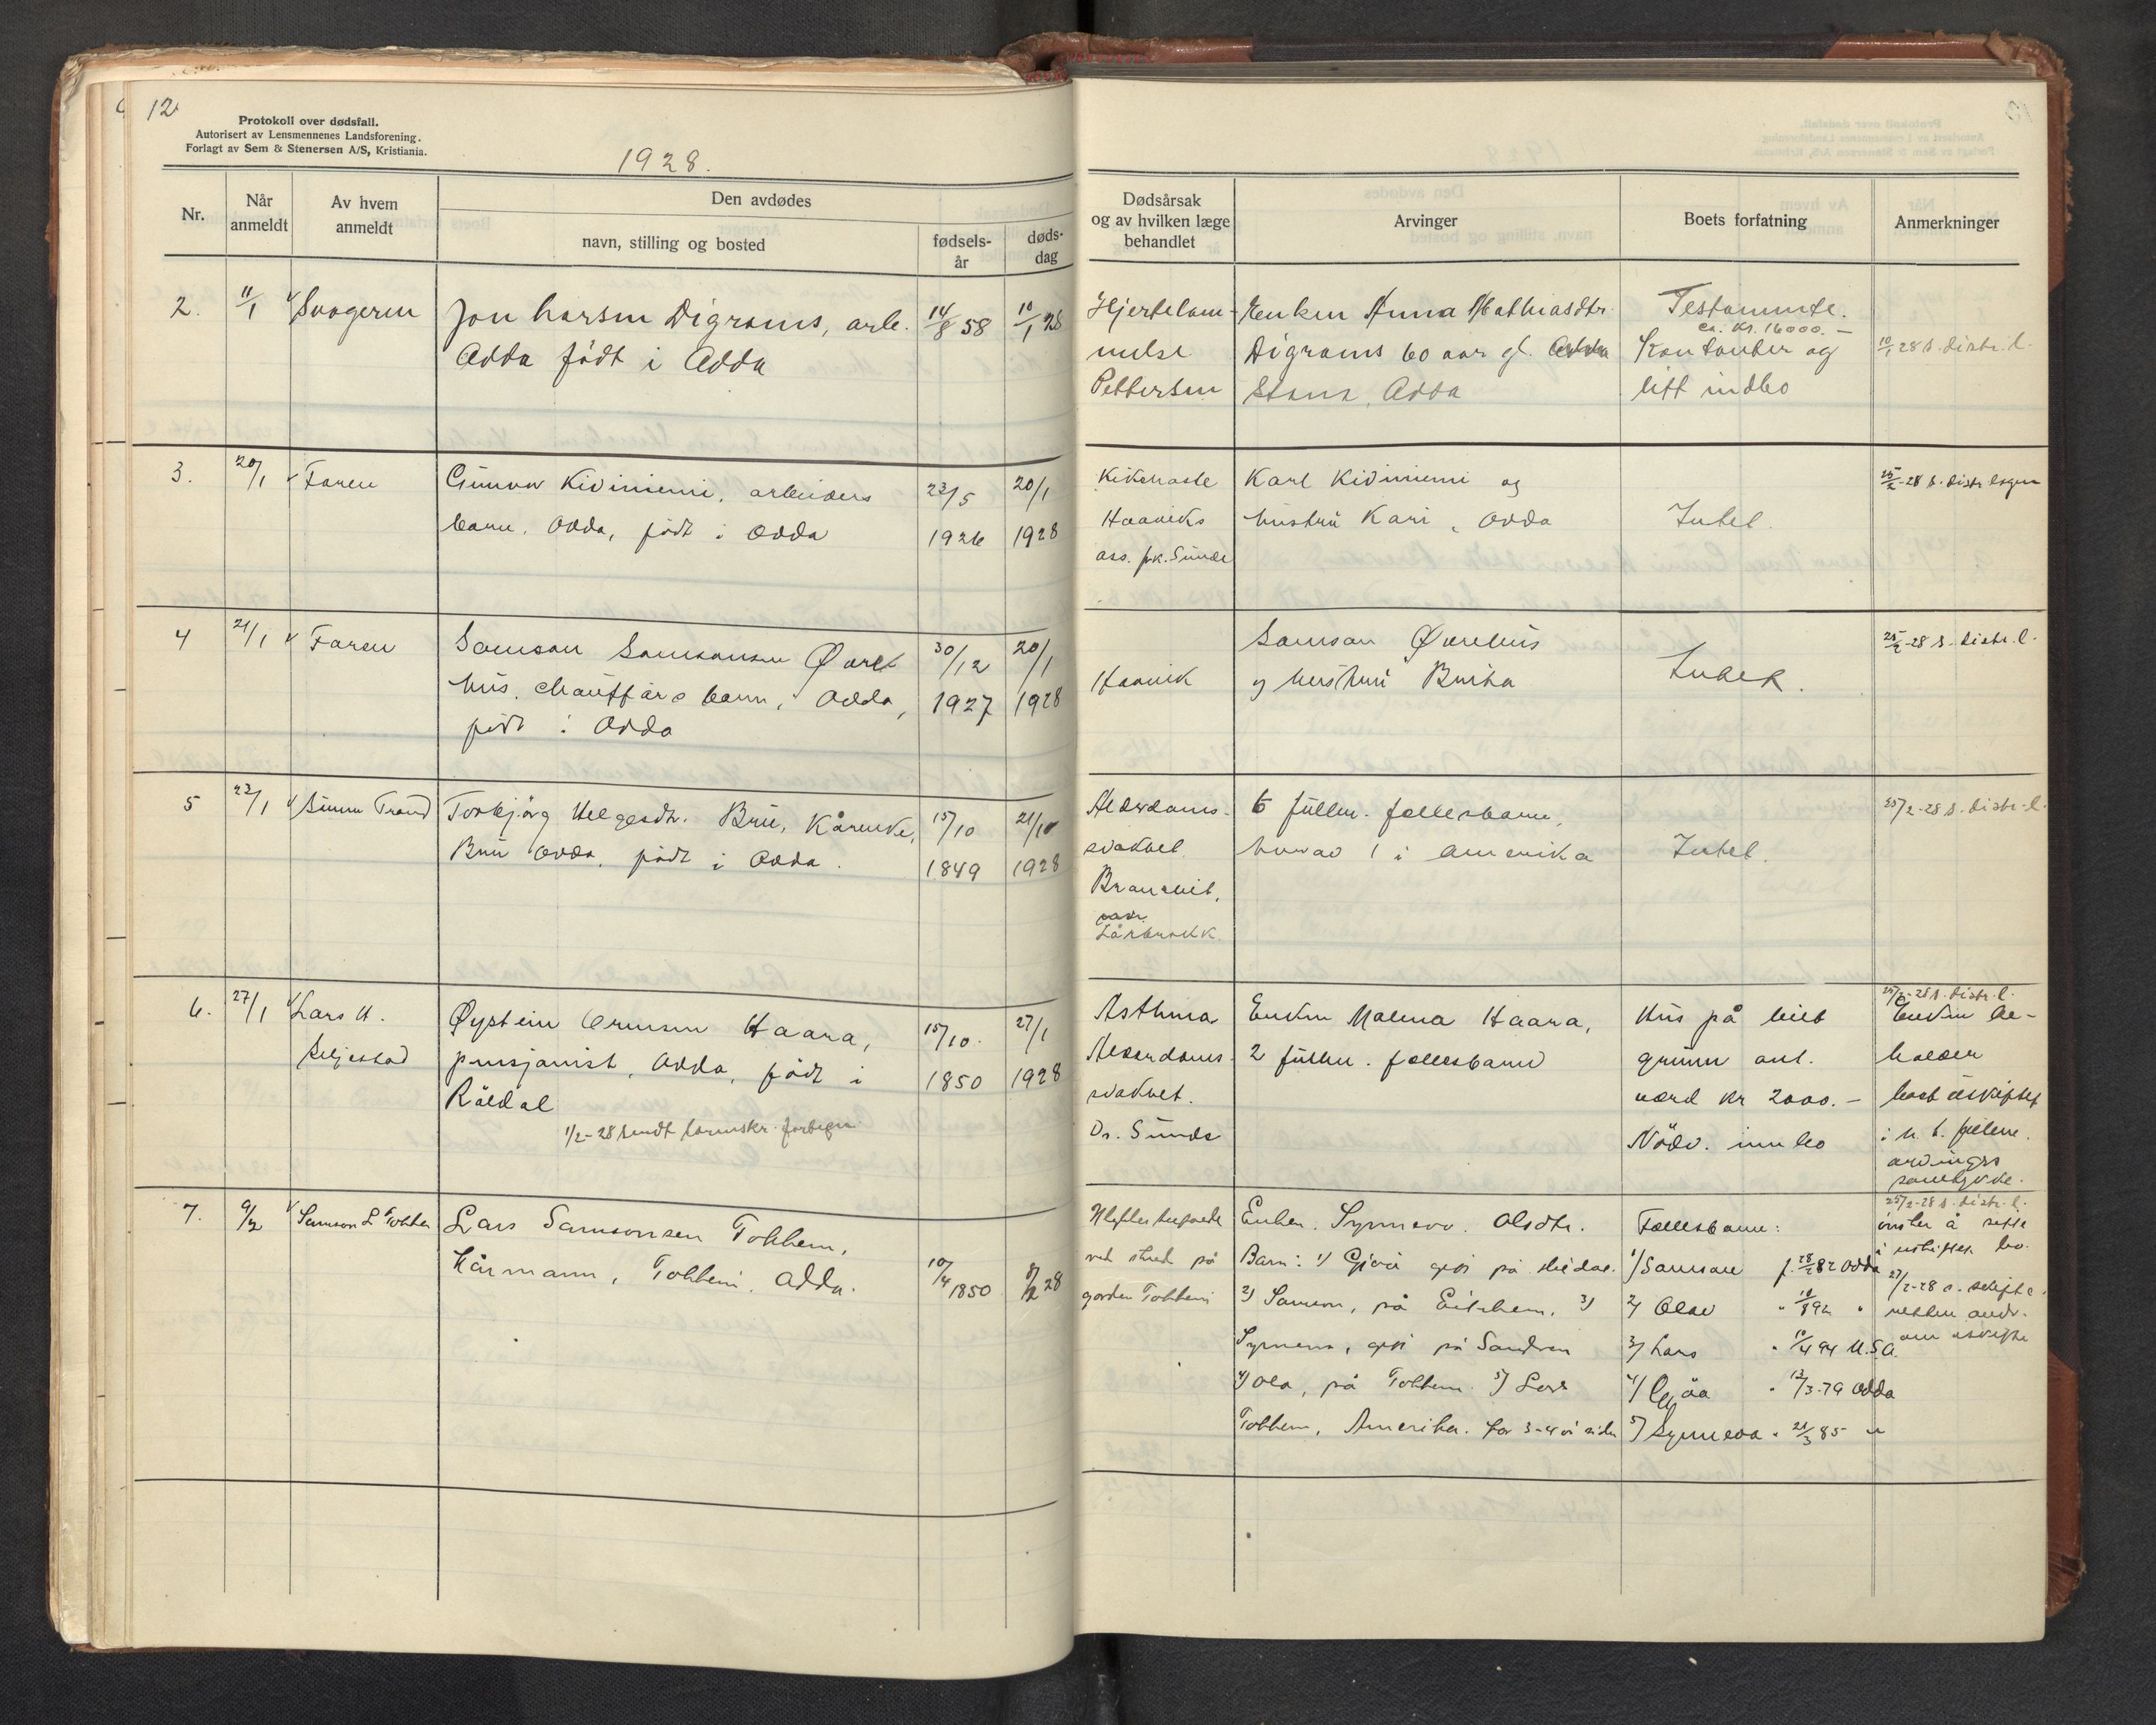 12
Protokoll over dødsfall.
Autorisert av Lensmennenes Landsforening.
Forlagt av Sem & Stenersen A/S, Kristiania.
1928.
Nr.
Når anmeldt
Av hvem anmeldt
Den avdødes
navn, stilling og bosted
fødsels-år
døds-dag
Dødsårsak
og av hvilken læge
behandlet
Arvinger
Boets forfatning
Anmerkninger
2. 11/1 Svogeren
Jon Larsen Digranes, arb.
Odda født i Odda
14/8 58
10/1 28
Hjertelam-
melse
Pettersen
Enken Anna Mathiasdtr.
Digranes 60 aar gl.
Odda
Testamente.
ca. Kr. 16000.-
Kontanter og
litt indbo
10/1 28 s. distr. l.
3. 20/1 Faren
Gunnar Kidiniemi, arbeiders
barn, Odda, født i Odda
23/5
1926
20/1
1928
Kikhoste
Haaviks
ass. frk. Sunde
Karl Kidiniemi og
hustru Kari, Odda
Intet.
25/2-28 s. distr legen
4 21/1 Faren
Samson Samsonsen Øvre
hus, chaufførs barn, Odda,
født i Odda
30/12
1927
20/1
1928
Haavik
Samson Ørehus
og hustru Brita
Intet.
25/2-28 s. distr. l.
5 23/1
Torbjørg Helgesdtr. Bru, Kårenke,
Bru Odda, født i Odda.
15/10
1849
21/1
1928
Alderdoms-
svakhet.
Lårbrudd.
6 fullm. fellesbarn,
hvorav 1 i Amerika
Intet.
25/2-28 s. distr. l.
6. 27/1 Lars H.
Seljestad
Øystein Ormsen Haara,
pensjonist, Odda, født i
Röldal
1/2-28 sendt formskr. forbegn.
15/10.
1850
27/1
1928
Asthma
Alderdoms-
svakhet.
Dr. Sunde
Enken Malena Haara,
2 fullm. fellesbarn
Hus på leiet
grunn ant.
verd kr 2000.-
Nödv. innbo
25/2-28 s. distr. l.
Enken be-
holder
boet uskiftet
arvingers
samtykke.
7. 9/2 Samson L Tokheim
Lars Samsonsen Tokheim,
Kårmann, Tokheim, Odda.
10/4 1850
8/2 28
ved sted på
garden Tokheim
Enken. Synneva. Olsdtr.
Barn: 1) Gjöa gift på
2) Samson, på Eitrheim, 3)
Synneva, gift på Sandven
4) Ola, på Tokheim. 5) Lars
Tokheim, Amerika. for 3-4 år siden
Fellesbarn:
1) Samson f. 28/2 82 Odda
2) Olav " 10/8 92 "
3) Lars " 10/4 94 U.S.A.
4) Gjöa " 12/3-79 Odda
5) Synneva " 21/3 85 "
25/2-28 s. distr. l.
önsker å sitte
i uskiftet bo.
27/2-28 s. skifte
retten andr.
om uskifte